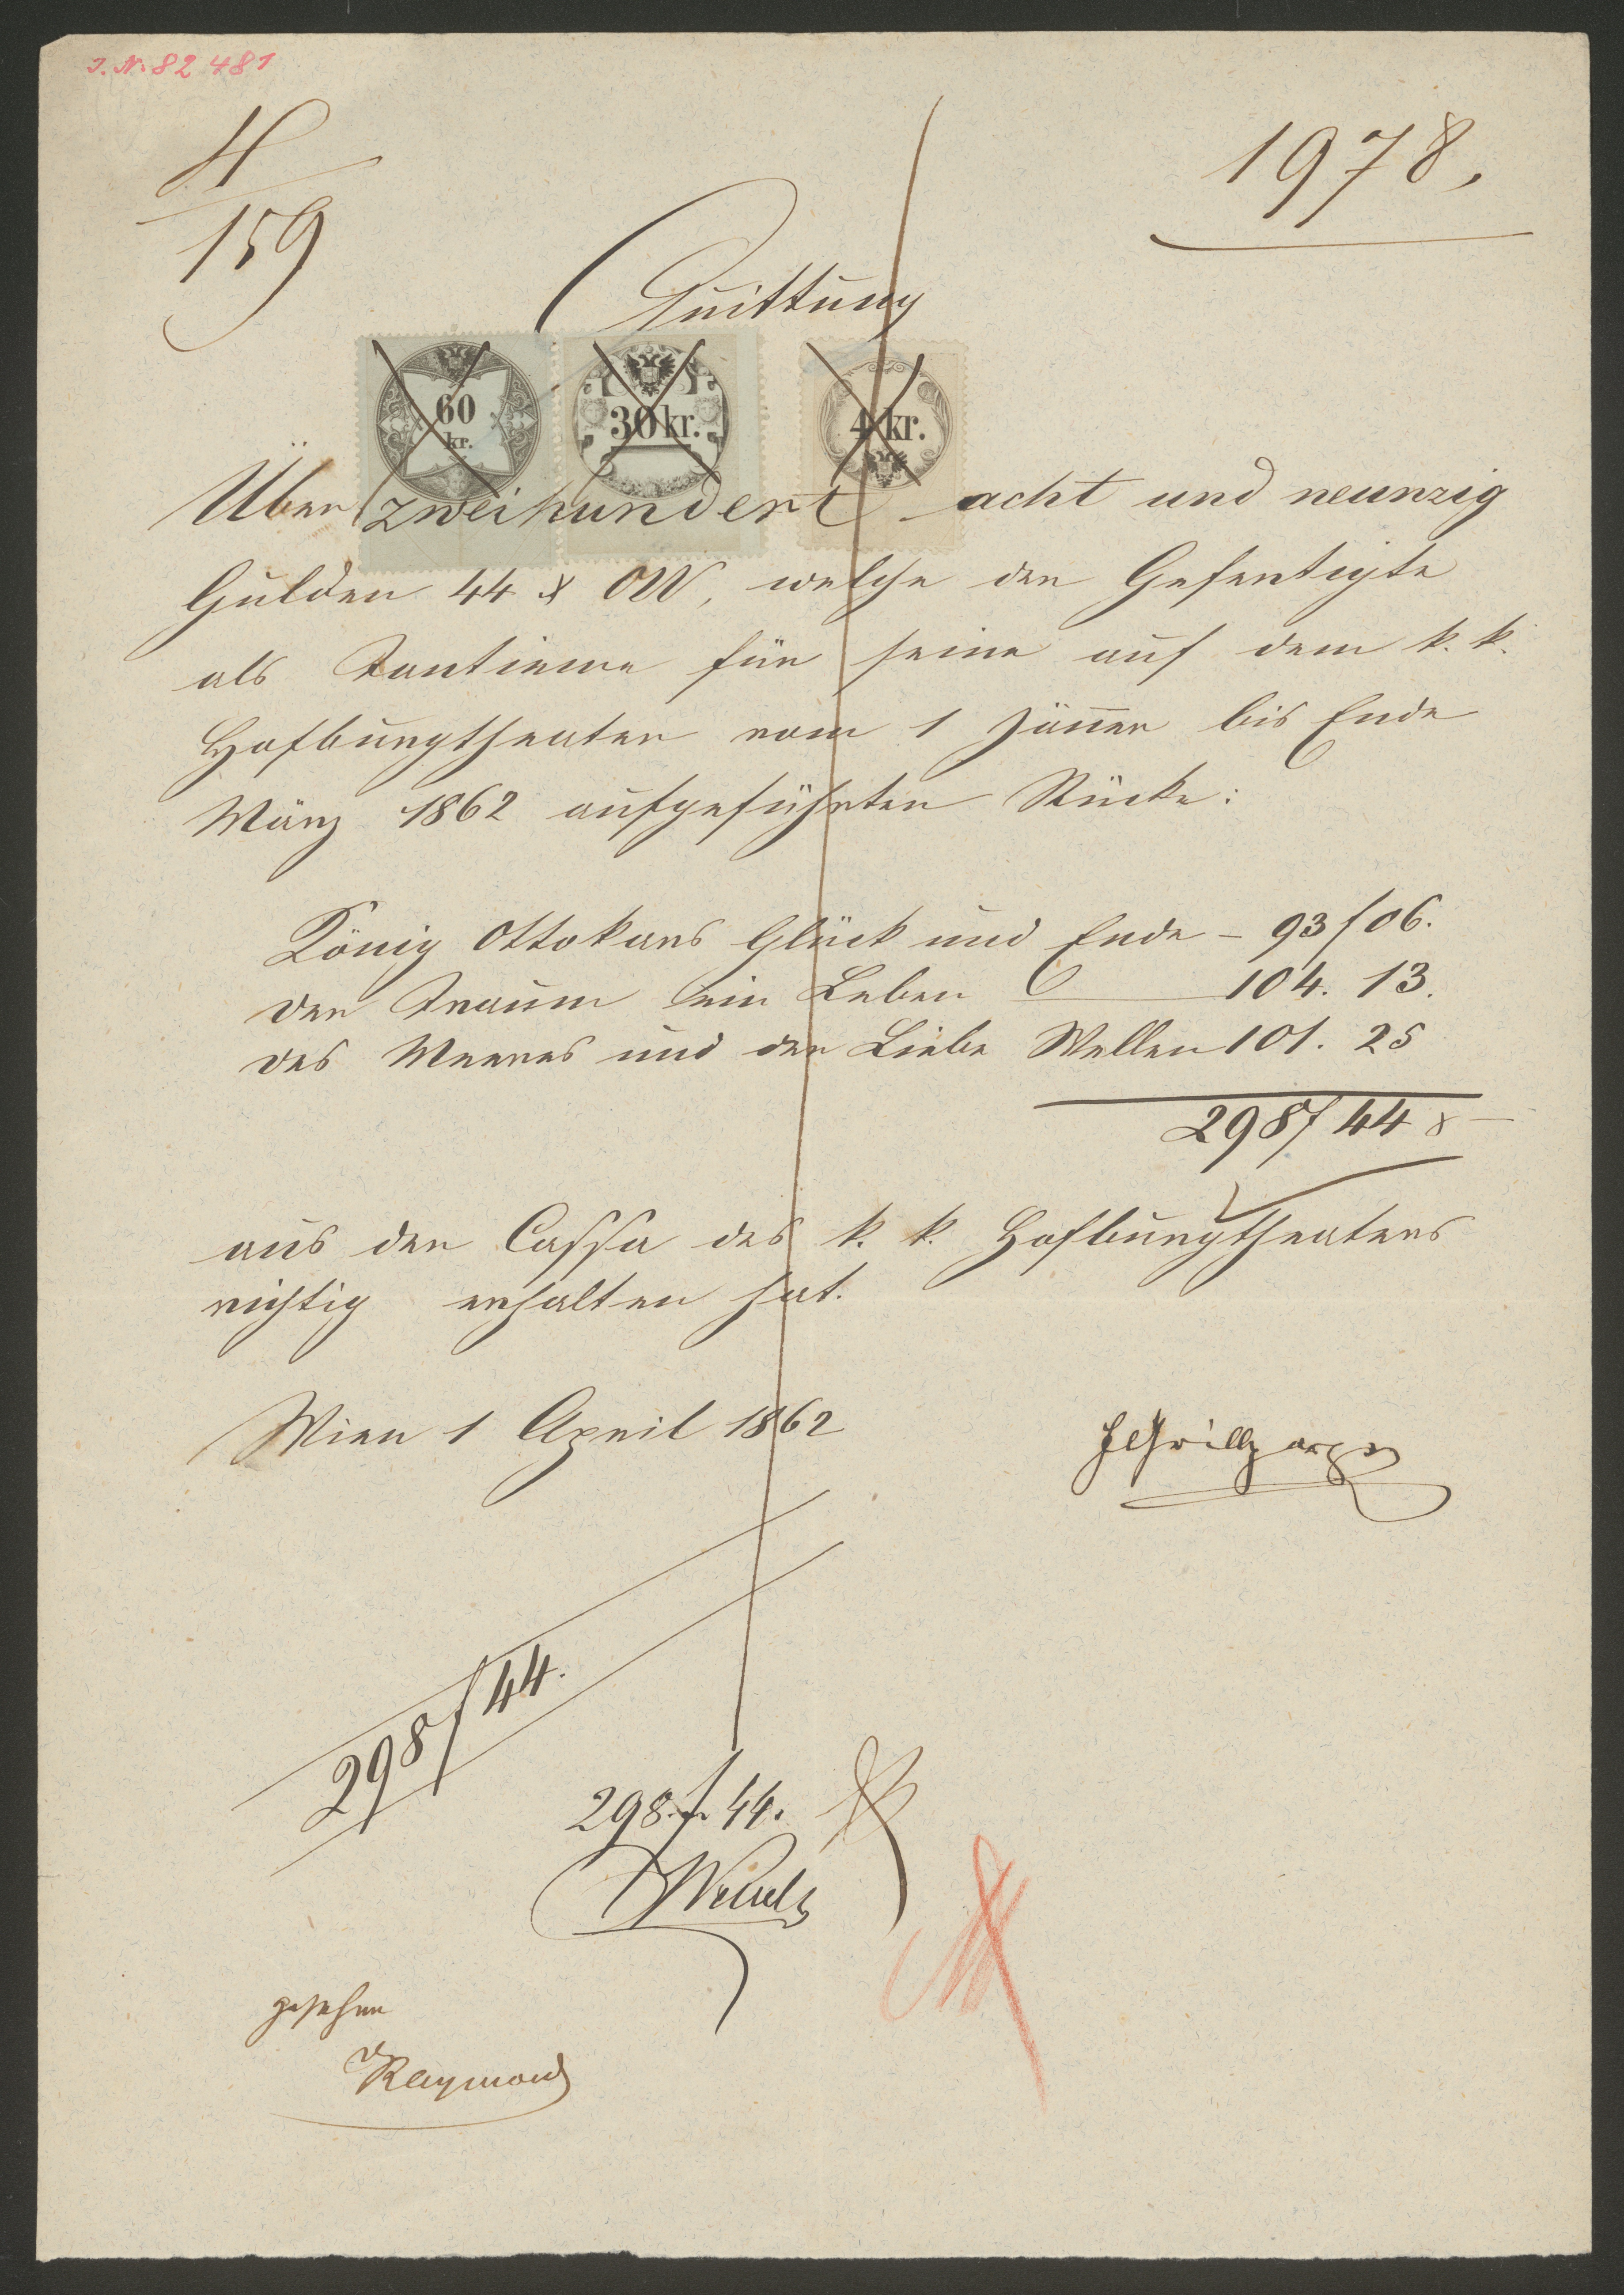 J. N. 82 481
H
159
1978,
Quittung
60
kr.
30 kr.
4 kr.
Über zweihundert acht und neunzig
Gulden 44 x ÖW, welche der Gefertigte
als Tantieme für seine auf dem k. k.
Hofburgtheater vom 1 Jänner bis Ende
März 1862 aufgeführten Stücke:
König Ottokars Glück und Ende – 93 f 06.
Der Traum ein Leben 104. 13.
Des Meeres und der Liebe Wellen 101. 25
298 f 44 x
aus der Cassa des k. k. Hofburgtheaters
richtig erhalten hat.
Wien 1 April 1862
FGrillparzer
298 f 44.
298 f. 44.
gesehen
Raymond